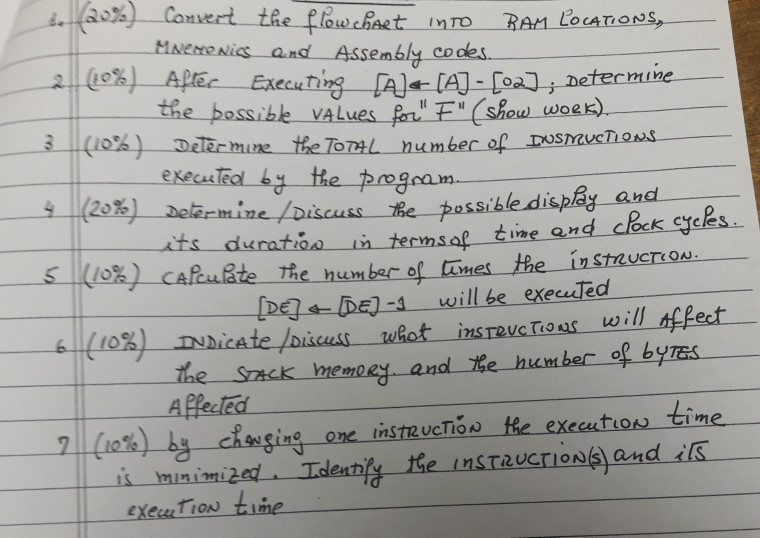 1. (20%) Convert the flowchart INTO RAM LOCATIONS,
MNEMONICS and Assembly codes.
2 (10%) After Executing [A]←[A]-[02]; Determine
the possible VALUES for "F" (show work).
3 (10%) Determine the TOTAL number of INSTRUCTIONS
executed by the program.
4 (20%) Determine/Discuss the possible display and
its duration in terms of time and clock cycles.
5 (10%) CALCULATE the number of times the INSTRUCTION.
[DE]←[DE]-1 will be executed
6 (10%) INDICATE/Discuss what INSTRUCTIONS will Affect
the STACK memory. and the number of bYTES
Affected
7 (10%) by changing one INSTRUCTION the execution time
is minimized. Identify the INSTRUCTION(S) and its
execution time